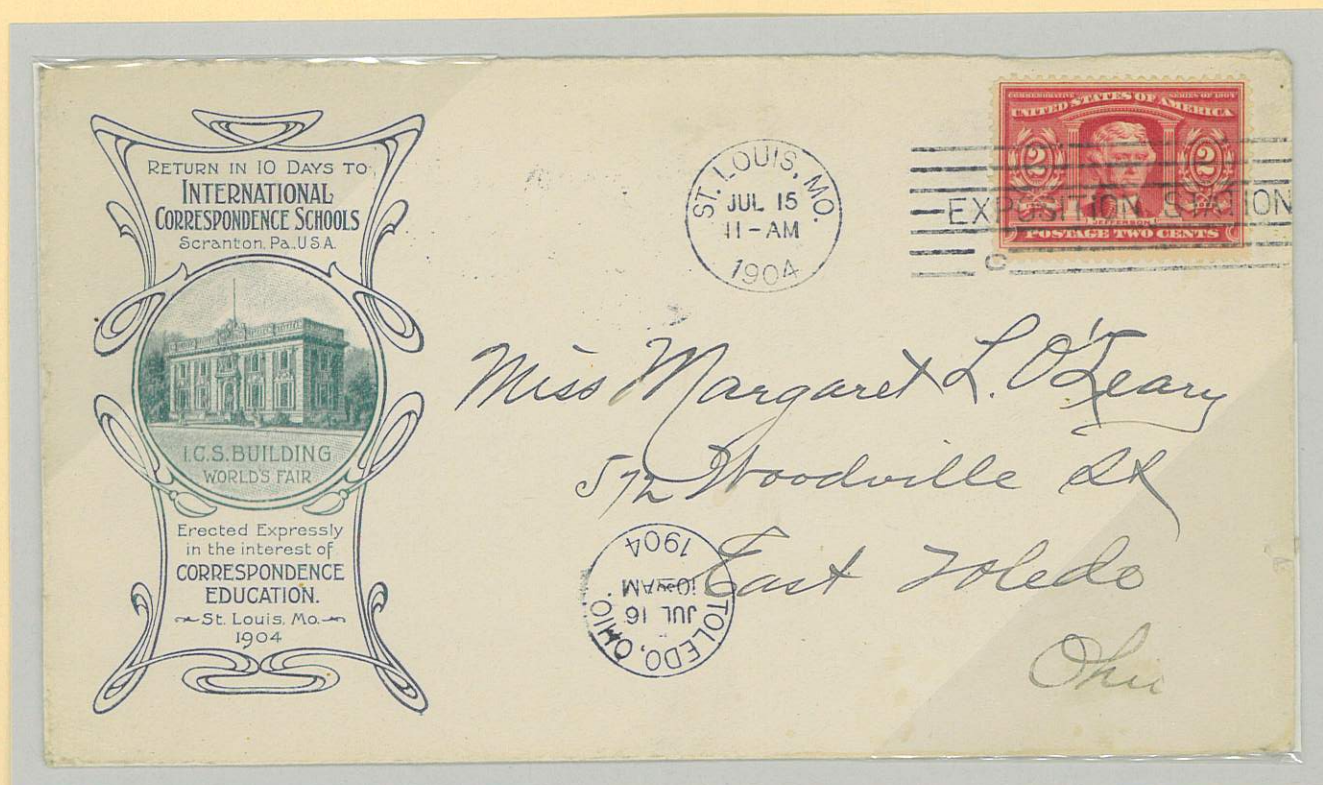 RETURN IN 10 DAYS TO
INTERNATIONAL
CORRESPONDENCE SCHOOLS
Scranton, Pa., U.S.A.
I.C.S. BUILDING
WORLD'S FAIR
Erected Expressly
in the interest of
CORRESPONDENCE
EDUCATION.
St. Louis, Mo.
1904
ST. LOUIS, MO.
JUL 15
11-AM
1904
COMMEMORATIVE SERIES OF 1904
UNITED STATES OF AMERICA
2 2
JEFFERSON
POSTAGE TWO CENTS
EXPOSITION STATION
C
Miss Margaret L. O'Leary
572 Woodville St
East Toledo
Ohio
TOLEDO, OHIO.
JUL 16
10-AM
1904